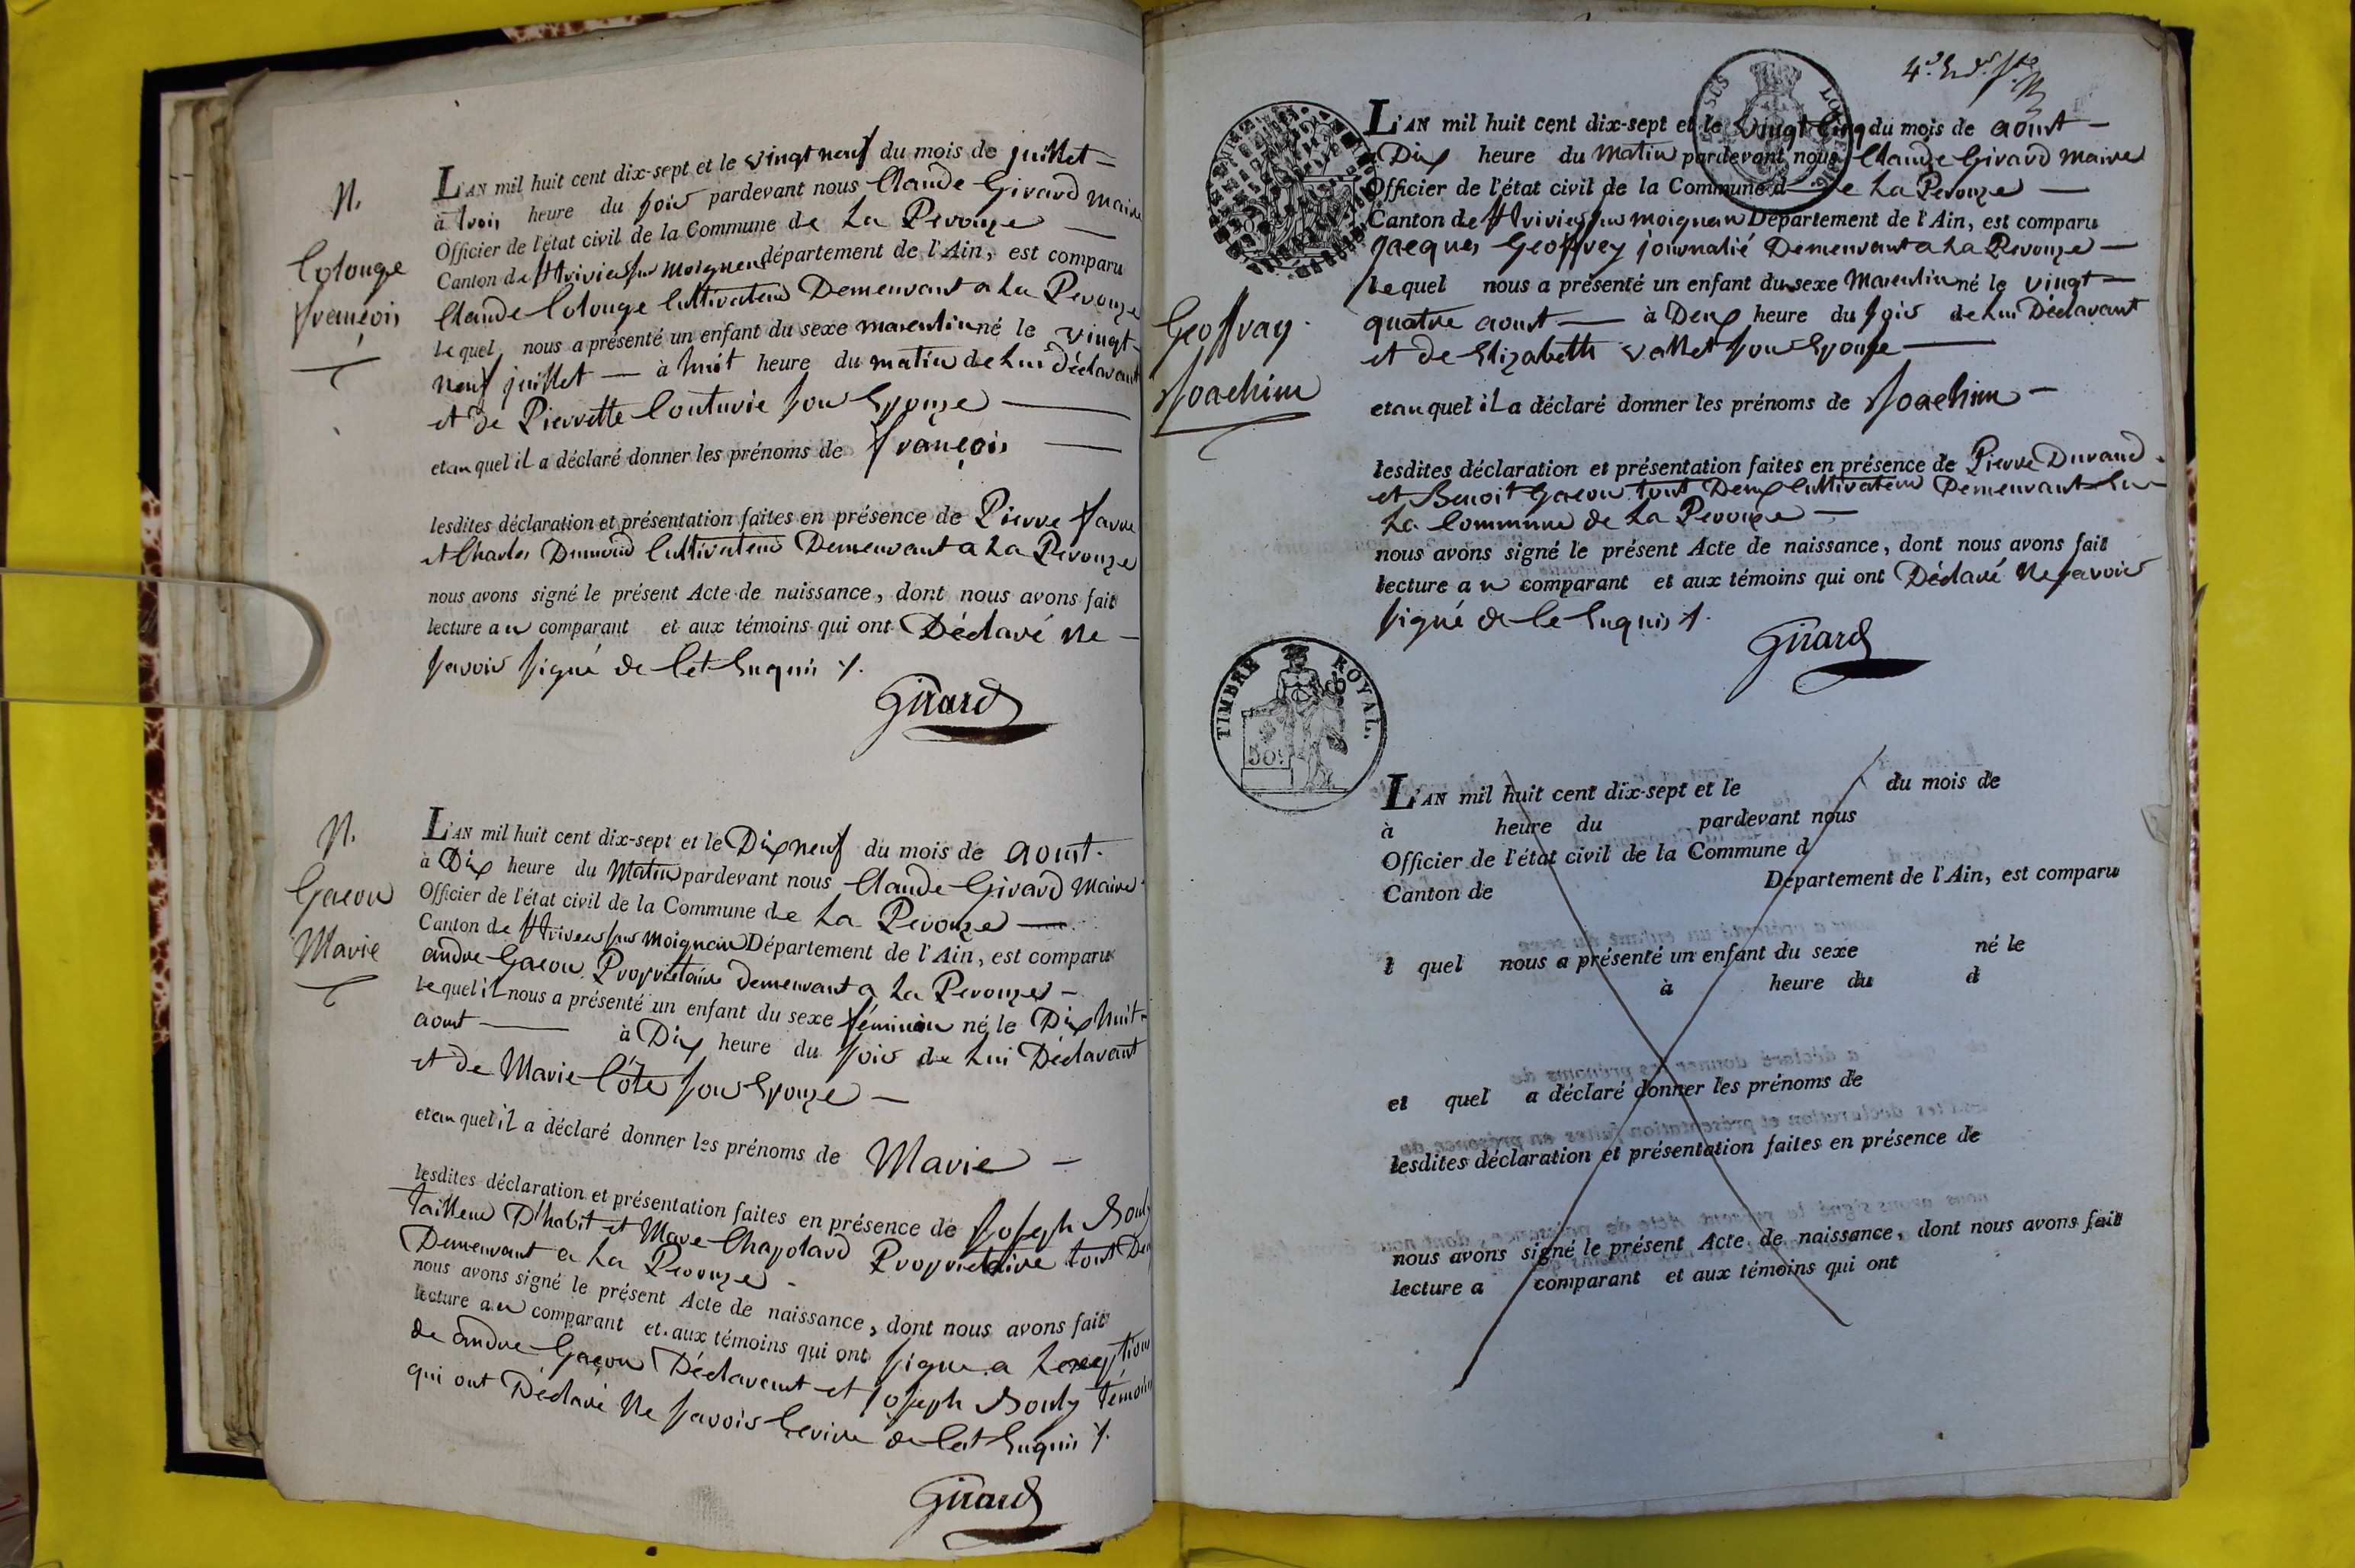 N.
Colonge
françois
L'AN mil huit cent dix-sept et le vingt neuf du mois de juillet
à trois heure du soir pardevant nous Claude Girard maire
Officier de l'état civil de la Commune de La Perouze
Canton de St trivier sur moignen département de l'Ain, est comparu
Claude Colonge Cultivateur Demeurant a La Perouze
lequel nous a présenté un enfant du sexe masculin né le vingt
neuf juillet à huit heure du matin de Lui Déclarant
et de Pierrette Couturie son Epouze
et au quel il a déclaré donner les prénoms de françois
lesdites déclaration et présentation faites en présence de Pierre favre
et Charles Cultivateur Demeurant a La Perouze
nous avons signé le présent Acte de naissance, dont nous avons fait
lecture au comparant et aux témoins qui ont Déclaré Ne
savoir signé de Cet Enquis
Girard
N.
Gacon
Marie
L'AN mil huit cent dix-sept et le Dix neuf du mois de aoust
à Dix heure du Matin pardevant nous Claude Girard Maire
Officier de l'état civil de la Commune de La Perouze
Canton de St trivier sur Moignein Département de l'Ain, est comparu
andre Gacon Propriétaire demeurant a La Perouze
lequel il nous a présenté un enfant du sexe féminin né le Dix huit
aoust à Dix heure du soir de Lui Déclarant
et de Marie Côte son Epouze
et au quel il a déclaré donner les prénoms de Marie
lesdites déclaration et présentation faites en présence de Joseph Bouly
tailleur D'habit et Marc Chapolard Proprietaire tout
Demeurant a La Perouze
nous avons signé le présent Acte de naissance, dont nous avons fait
lecture au comparant et aux témoins qui ont signe a Lexeption
de andre Gaçon Déclarant et Joseph Bouly témoin
qui ont Déclaré Ne savoir Ecrire de Cet Enquis
Girard
L'AN mil huit cent dix-sept et le vingt Cinq du mois de aoust
Dix heure du Matin pardevant nous Claude Girard maire
Officier de l'état civil de la Commune d de La Perouze
Canton de St trivier sur moignen Département de l'Ain, est comparu
jacques Geoffrey journalié Demeurant a La Perouze
lequel nous a présenté un enfant du sexe Masculin né le vingt
Geoffray
Joachim
quatre aoust à Deux heure du soir de Lui Déclarant
et de Elizabeth vallet son Epouse
et au quel il a déclaré donner les prénoms de Joachim
lesdites déclaration et présentation faites en présence de Pierre Durand
et Benoit Gacon tout Deux Cultivateur Demeurant
La Commune de La Perouze
nous avons signé le présent Acte de naissance, dont nous avons fait
lecture au comparant et aux témoins qui ont Déclaré Ne savoir
signé de Ce Enquis
Girard
TIMBRE ROYAL.
50
L'AN mil huit cent dix-sept et le du mois de
à heure du pardevant nous
Officier de l'état civil de la Commune d
Canton de Département de l'Ain, est comparu
l quel nous a présenté un enfant du sexe né le
à heure du d
et quel a déclaré donner les prénoms de
lesdites déclaration et présentation faites en présence de
nous avons signé le présent Acte de naissance, dont nous avons fait
lecture a comparant et aux témoins qui ont